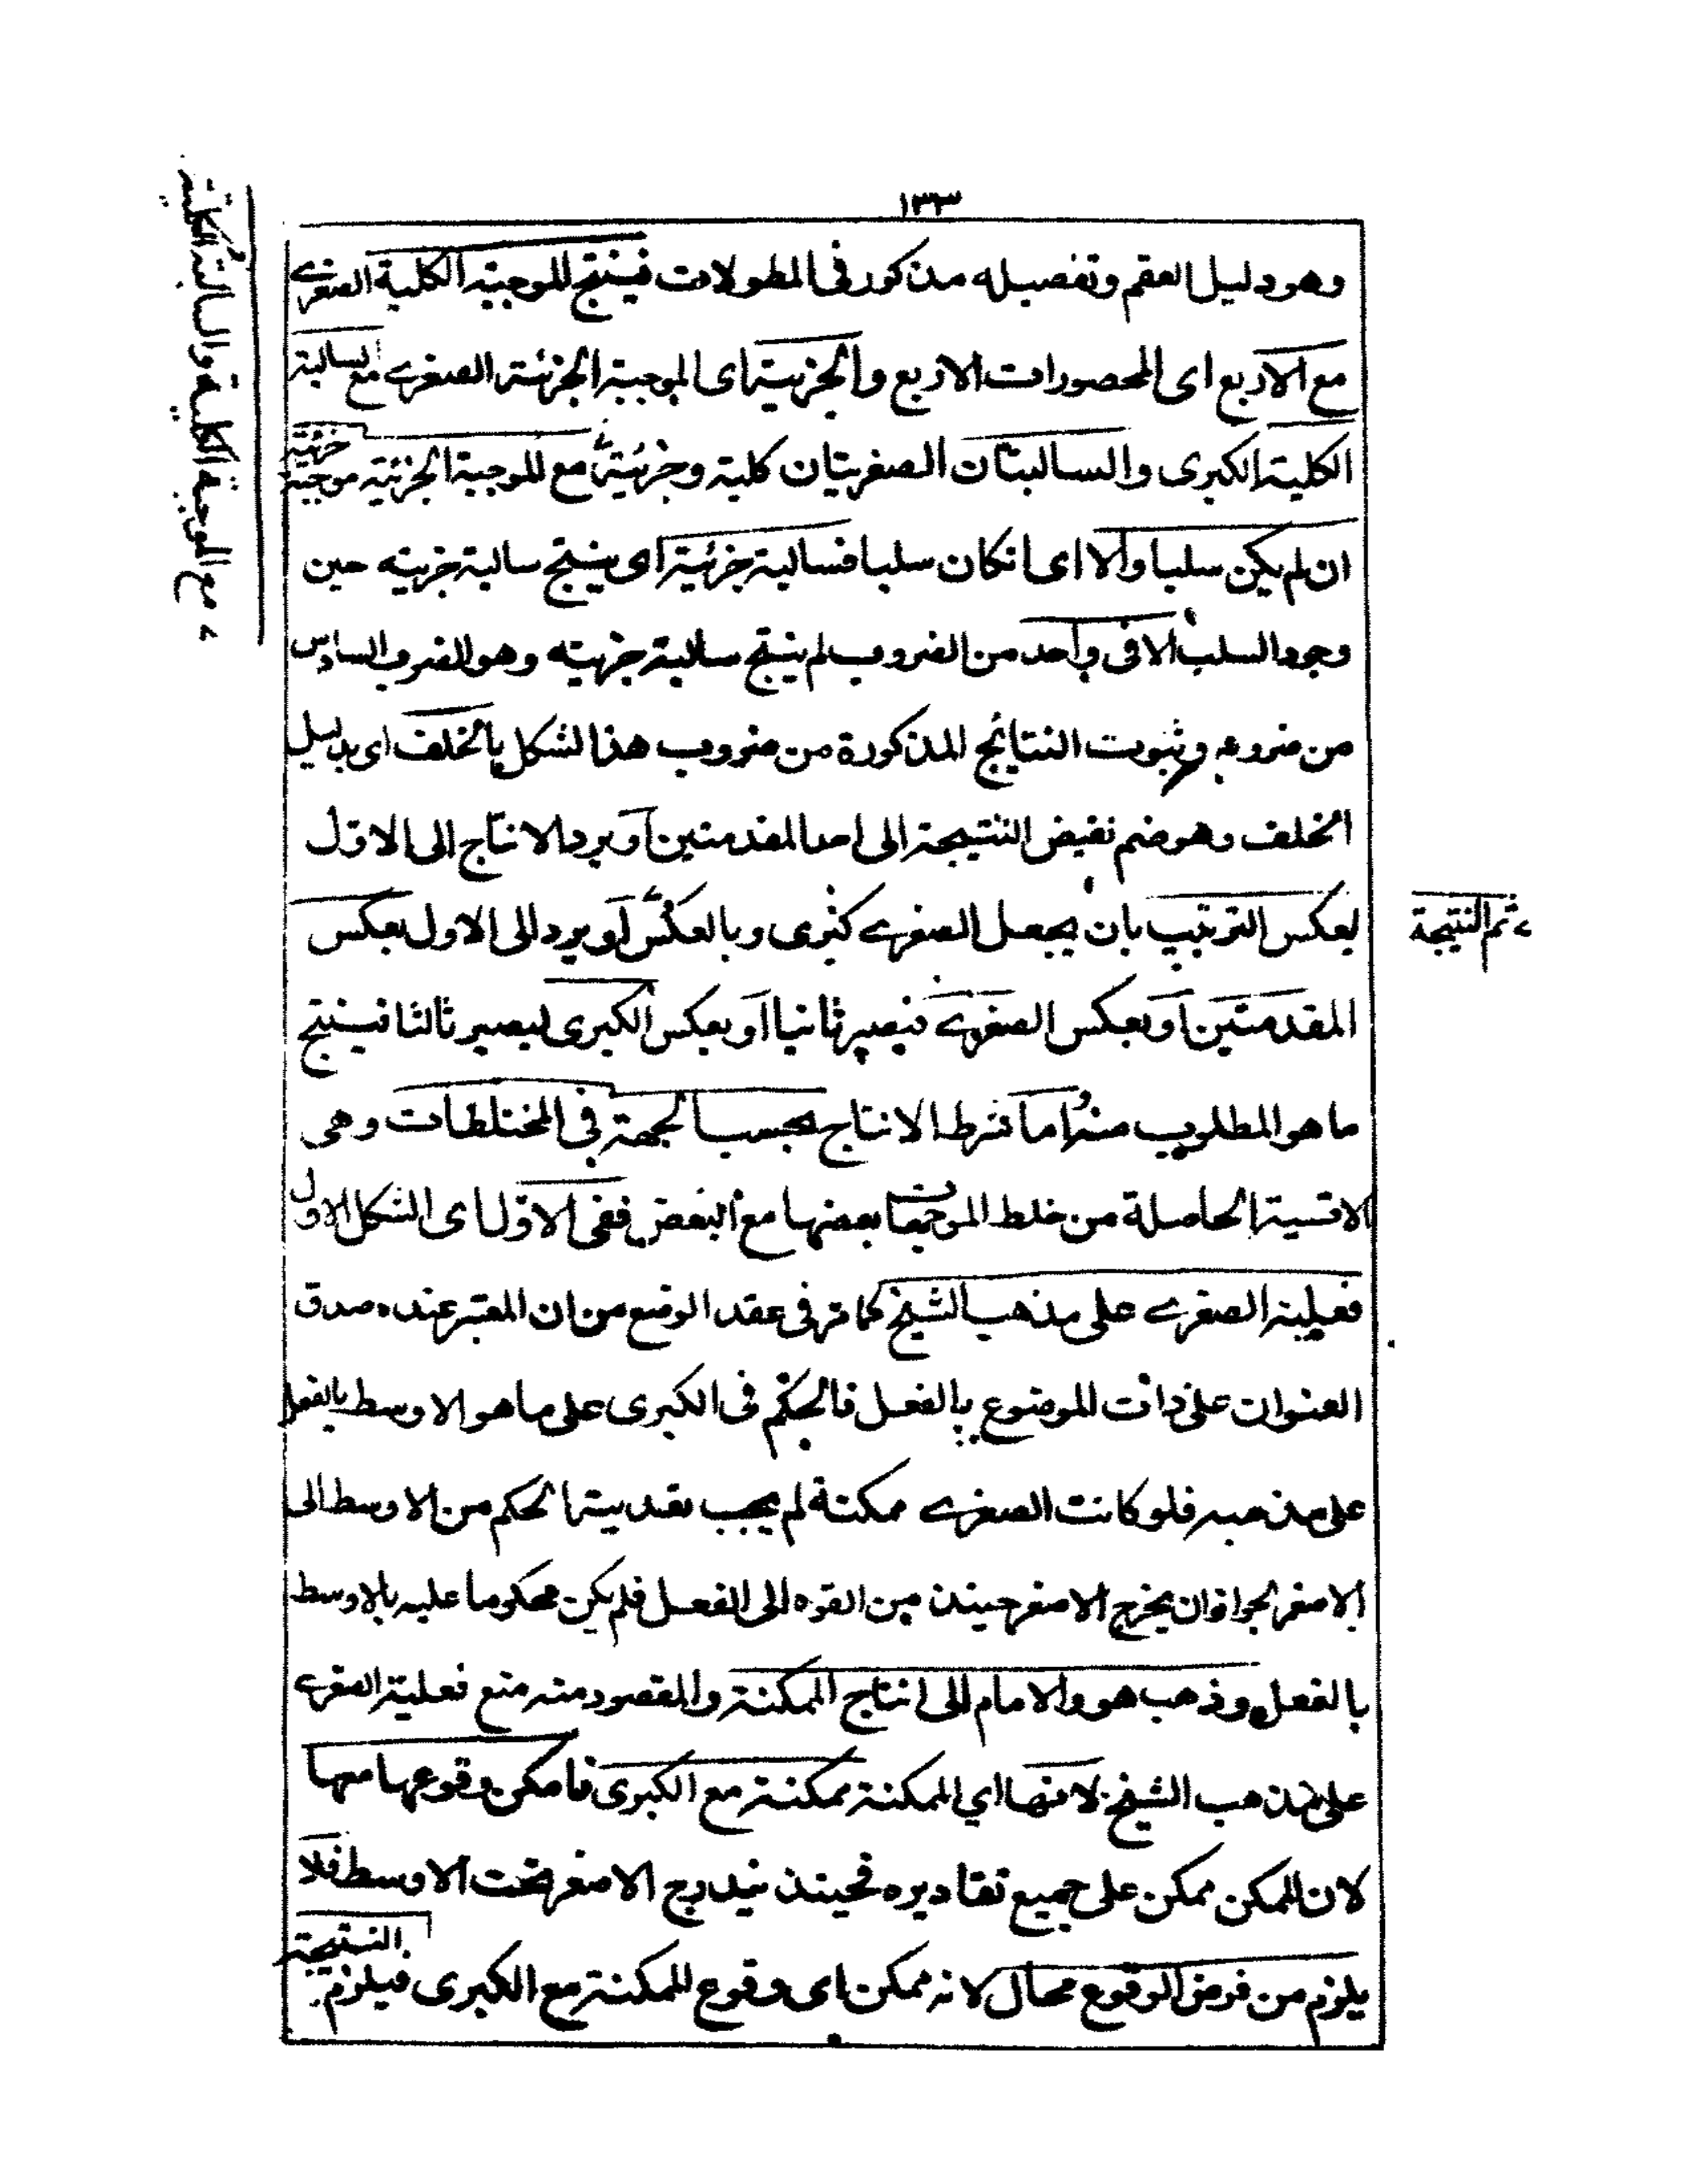 ١٣٣
وهو دليل العقم وتفصيله مذكور فى المطولات فينتج الموجبة الكلية الصغرے
مع الاربع اى المحصورات الاربع والجزئية اى الموجبة الجزئية الصغرے مع السالبة
الكلية الكبرى والسالبتان الصغريتان كلية وجزئية مع الموجبة الجزئية موجبة جزئية
ان لم يكن سلبا والا اى ان كان سلبا فسالبة جزئية اى ينتج سالبة جزيته حين
وجود السلب الا فى واحد من الضروب لم ينتج سالبة جزيته وهو الضرب السادس
من ضروبه وثبوت النتايج المذكورة من ضروب هذا لشكل بالخلف اى بدليل
الخلف وهو ضم نقيض النتيجة الى احد المقدمتين او يرد الانتاج الى الاول
بعكس الترتيب بان يجعل الصغرے كبرى وبالعكس او يرد الى الاول بعكس
المقدمتين او بعكس الصغرے فيصير ثانيا او بعكس الكبرى ليصير ثالثا فينتج
ما هو المطلوب منه اما شرط الانتاج بحسب الجهة فى المختلطات وهى
الاقسية الحاصلة من خلط الموجهات بعضها مع البعض ففى الاول اى الشكل الاول
فعلية الصغرے على مذهب الشيخ كما مر فى عقد الوضع من ان المعتبر عنده صدق
العنوان على ذات الموضوع بالفعل فالحكم فى الكبرى على ما هو الاوسط بالفعل
على مذهبه فلو كانت الصغرے ممكنة لم يجب تعديته الحكم من الاوسط الى
الاصغر لجواز ان يخرج الاصغر حينئذ من القوه الى الفعل فلم يكن محكوما عليه بالاوسط
بالفعل وذهب هو والامام الى انتاج الممكنة والمقصود منه منع فعلية الصغرے
على مذهب الشيخ لانها اي الممكنة ممكنة مع الكبرى فامكن وقوعها معها
لان الممكن ممكن على جميع تقاديره فحينئذ يندرج الاصغر تحت الاوسط فلا
يلزم من فرض الوقوع محال لانه ممكن اى وقوع الممكنة مع الكبرى فيلزم النتيجة
ثم النتيجة
مع الموجبة الكلية والسالبة الكلية